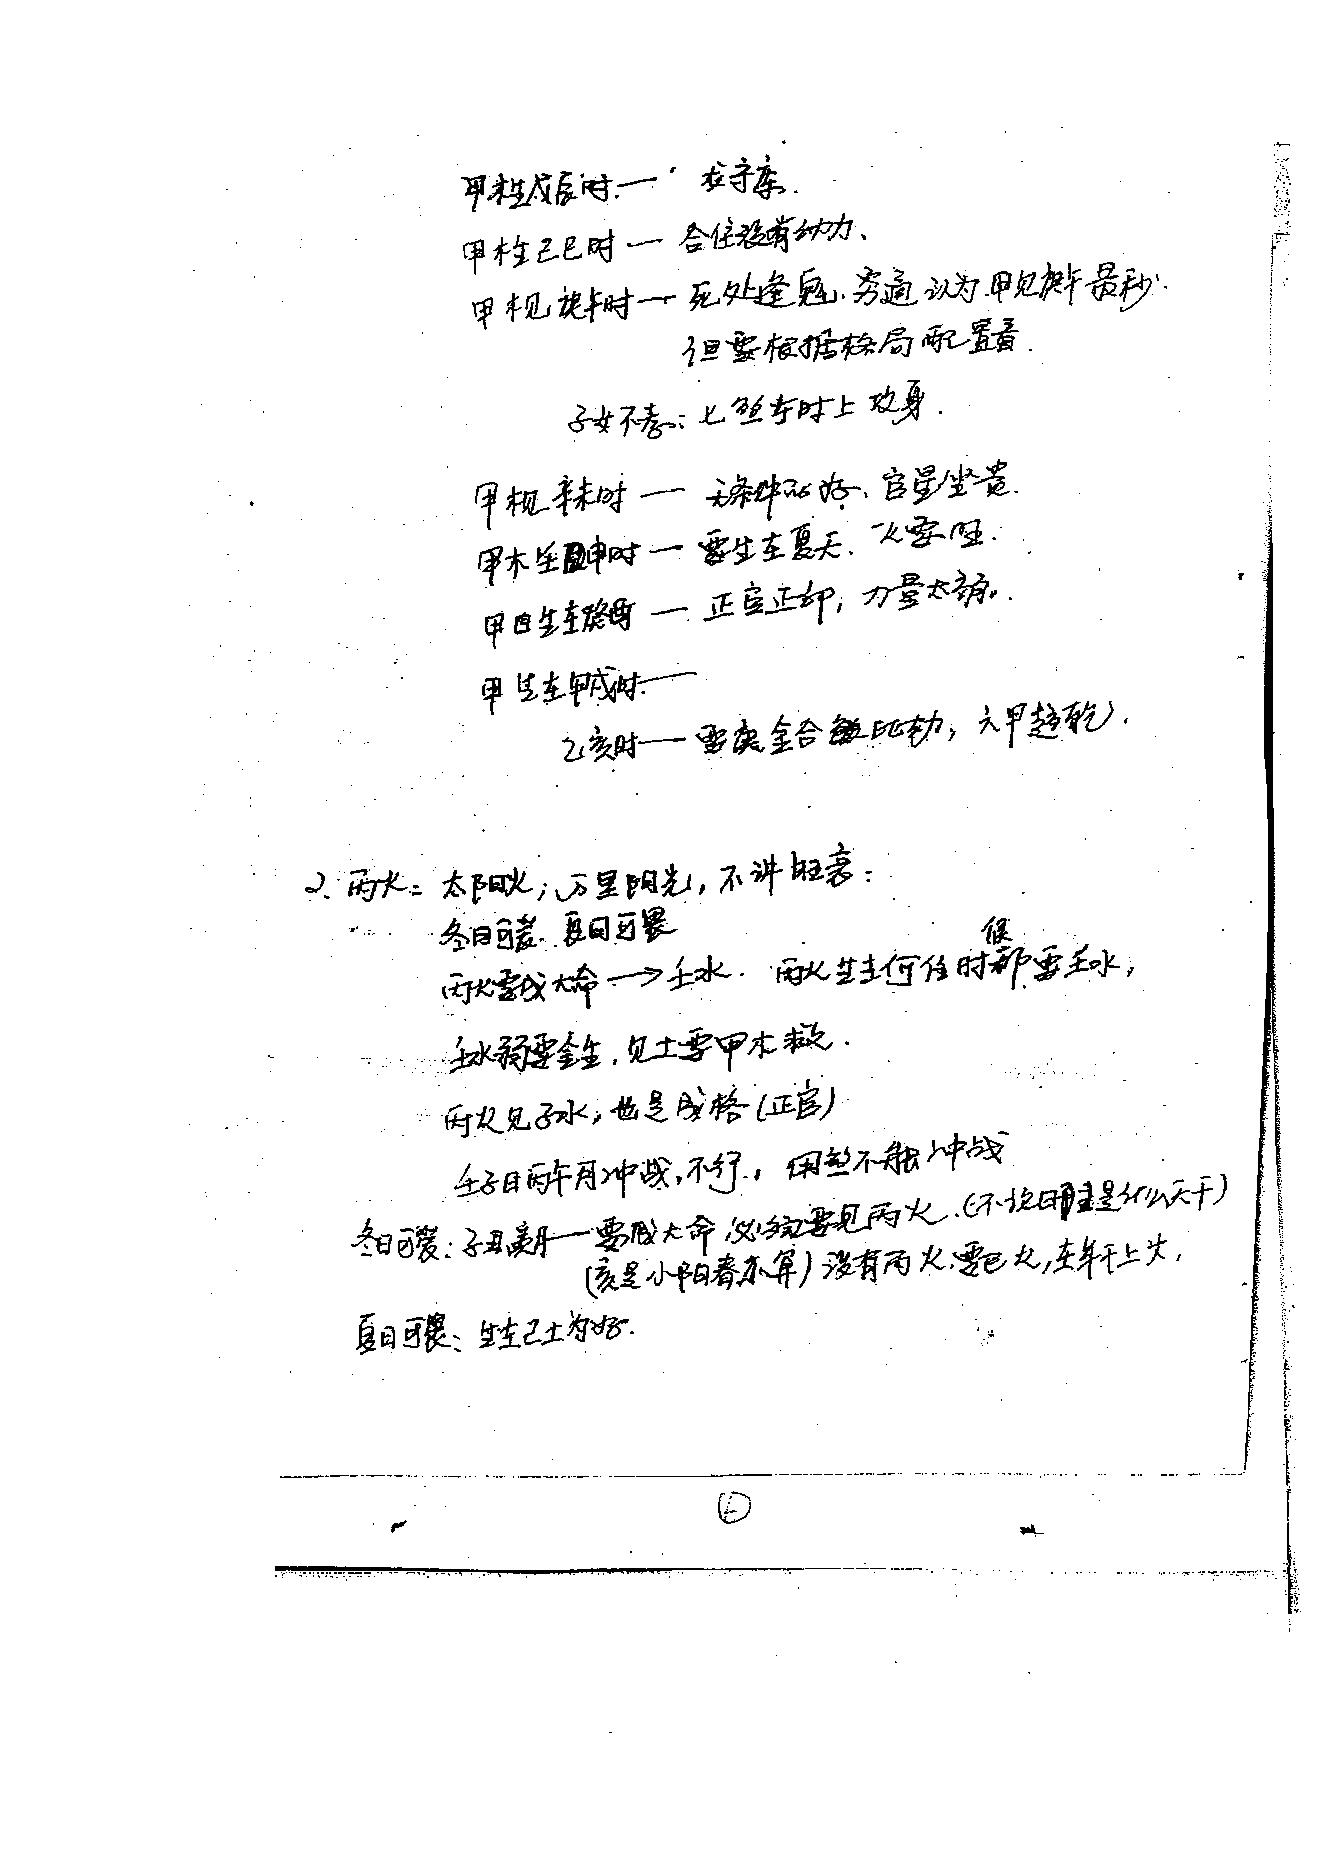 甲木生戊辰时—财守库.
甲木生己巳时—合住没有动力、
甲木见庚午时—死处逢鬼.穷通认为甲见庚午最秒.
但要根据格局配置看.
子女不孝:七煞在时上攻身.
甲木见辛未时—无条件的好、官星坐贵.
甲木生壬申时—要生在夏天.火要旺.
甲日生在癸酉—正官正印,力量太弱.
甲生在甲戌时.—
乙亥时—要庚金合住比劫,六甲趋乾).
2、丙火=太阳火;万里阳光,不讲旺衰:
冬日可爱.夏日可畏
丙火要成大命→壬水.丙火生在何任时候都要壬水,
壬水弱要金生,见土要甲木救.
丙火见子水,也是成格(正官)
壬子日丙午月冲战,不行.,用煞不能冲战
冬日可爱:子丑亥月—要成大命必须要见丙火.(不论日主是什么天干)
(亥是小阳春不算)没有丙火.要巳火,在年干上火.
夏日可畏、生在己土为好.